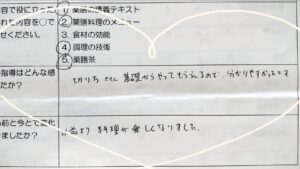 容で役に立った
れた内容を○で
せください。
1) 薬膳の講義テキスト
2) 薬膳料理のメニュー
3) 食材の効能
4) 調理の技術
5) 薬膳茶
指導はどんな感
たか？
切り方 etc 基礎からやってもらえるので、分かりやすかったです
前と今とで変化
ましたか？
より 料理が楽しくなりました。